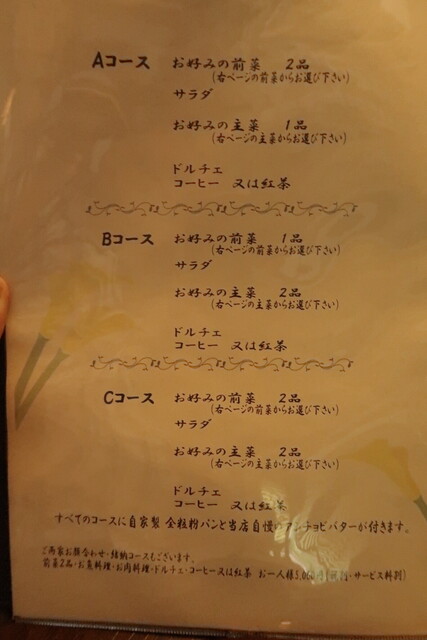 Aコース お好みの前菜 2品
(右ページの前菜からお選び下さい)
サラダ
お好みの主菜 1品
(右ページの主菜からお選び下さい)
ドルチェ
コーヒー 又は紅茶
Bコース お好みの前菜 1品
(右ページの前菜からお選び下さい)
サラダ
お好みの主菜 2品
(右ページの主菜からお選び下さい)
ドルチェ
コーヒー 又は紅茶
Cコース お好みの前菜 2品
(右ページの前菜からお選び下さい)
サラダ
お好みの主菜 2品
(右ページの主菜からお選び下さい)
ドルチェ
コーヒー 又は紅茶
すべてのコースに自家製 全粒粉パンと当店自慢のアンチョビバターが付きます。
ご両家お顔合わせ・結納コースもございます。
前菜2品・お魚料理・お肉料理・ドルチェ・コーヒー又は紅茶 お一人様5,060円 ・サービス料別)